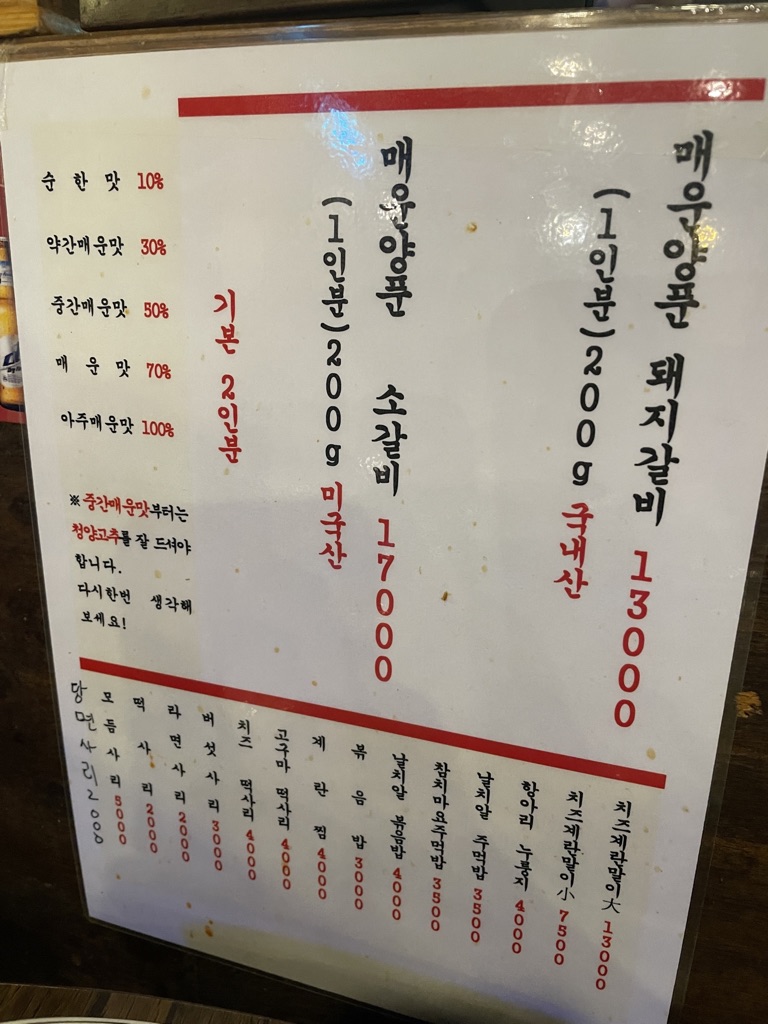 매운양푼 돼지갈비 13000
(1인분)200g 국내산
매운양푼 소갈비 17000
(1인분)200g 미국산
기본 2인분
순한맛 10%
약간매운맛 30%
중간매운맛 50%
매운맛 70%
아주매운맛 100%
※ 중간매운맛부터는
청양고추를 잘 드셔야
합니다.
다시한번 생각해
보세요!
치즈계란말이 大 13000
치즈계란말이 小 7500
항아리 누룽지 4000
날치알 주먹밥 3500
참치마요주먹밥 3500
날치알 볶음밥 4000
볶음밥 3000
계란찜 4000
고구마 떡사리 4000
치즈 떡사리 4000
버섯사리 3000
라면사리 2000
떡사리 2000
모듬사리 5000
당면사리 2000